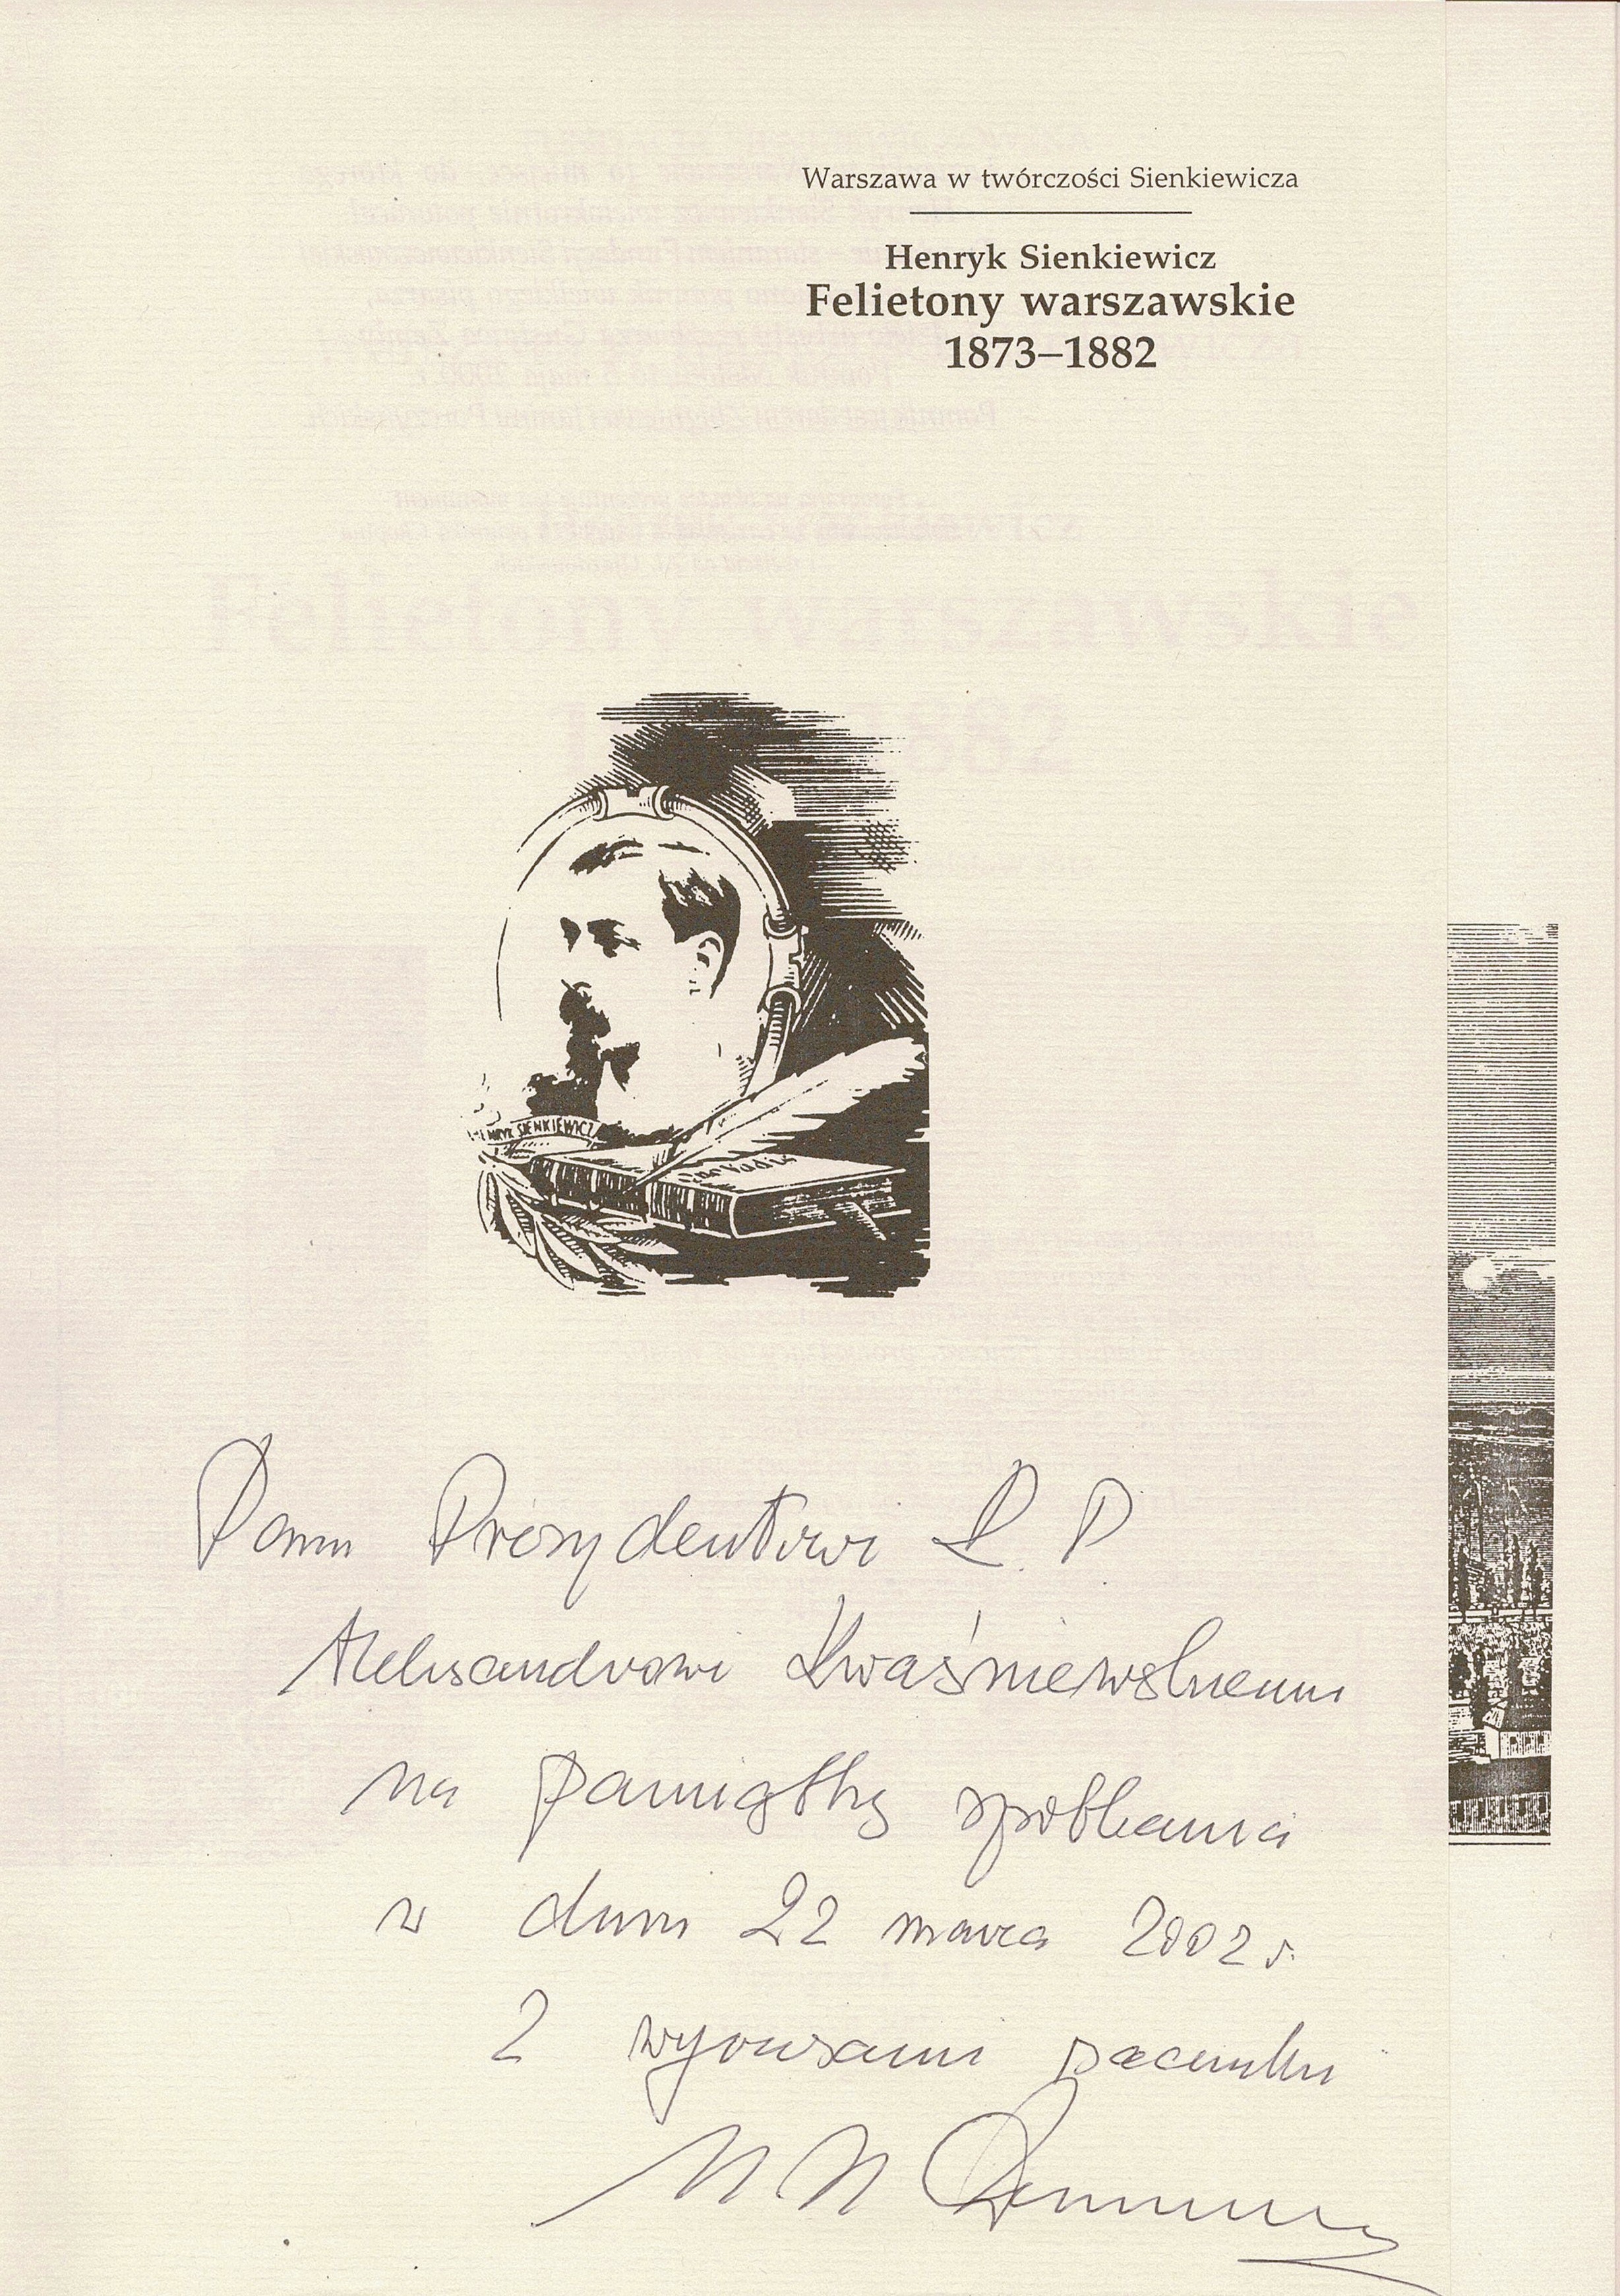 Warszawa w twórczości Sienkiewicza
Henryk Sienkiewicz
Felietony warszawskie
1873–1882
HENRYK SIENKIEWICZ
Quo Vadis
Panu Prezydentowi R. P.
Aleksandrowi Kwaśniewskiemu
na pamiątkę spotkania
w dniu 22 marca 2002 r.
Z wyrazami szacunku